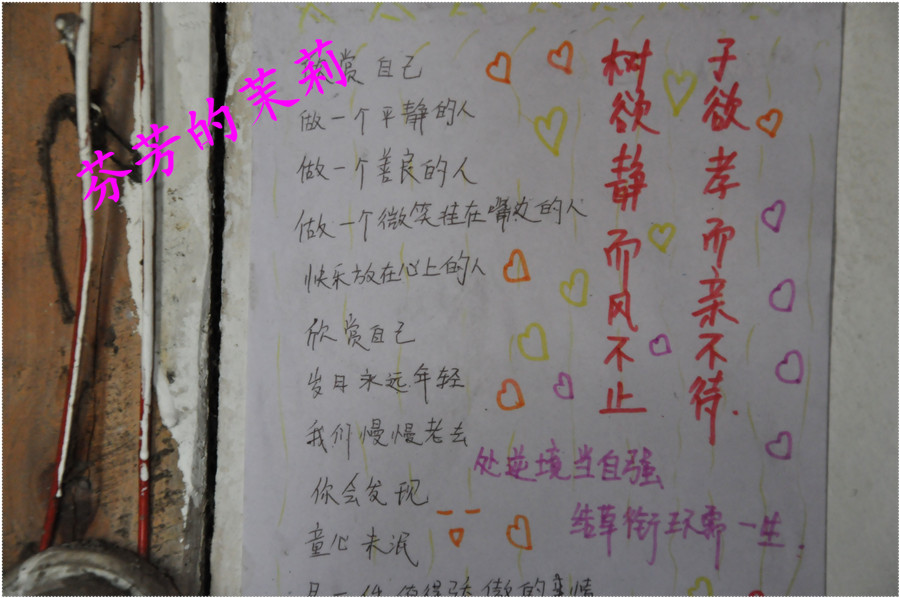 芬芳的茉莉
欣赏自己
做一个平静的人
做一个善良的人
做一个微笑挂在嘴边的人
快乐放在心上的人
欣赏自己
岁月永远年轻
我们慢慢老去
你会发现
童心未泯
是一件值得骄傲的事情
树欲静而风不止
子欲孝而亲不待.
处逆境当自强
结草衔环需一生.